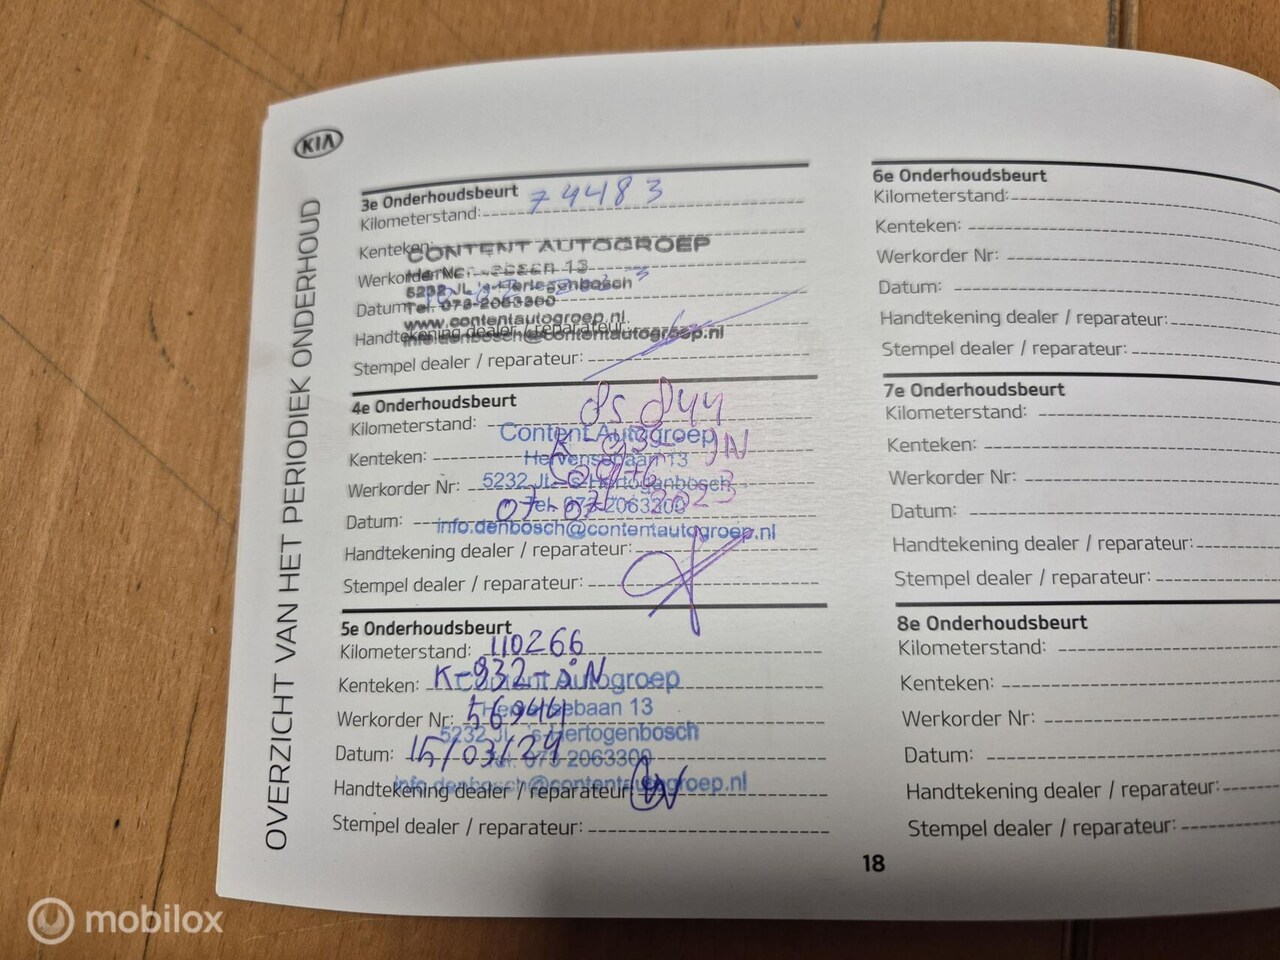 KIA
OVERZICHT VAN HET PERIODIEK ONDERHOUD
3e Onderhoudsbeurt
Kilometerstand: 74483
Kenteken:
CONTENT AUTOGROEP
Werkorder Nr: 13
5232 JL 's-Hertogenbosch
Datum:
Tel. 073-2063300
www.contentautogroep.nl
Handtekening dealer / reparateur:
info.denbosch@contentautogroep.nl
Stempel dealer / reparateur:
4e Onderhoudsbeurt
Kilometerstand: 85844
Content Autogroep
Kenteken:
Hervensebaan 13
Werkorder Nr:
5232 JL 's-Hertogenbosch
Datum: 2023
Tel. 073 2063300
info.denbosch@contentautogroep.nl
Handtekening dealer / reparateur:
Stempel dealer / reparateur:
5e Onderhoudsbeurt
Kilometerstand: 110266
Kenteken: K-932-JN
Content Autogroep
Hervensebaan 13
Werkorder Nr: 56944
5232 JL 's-Hertogenbosch
Datum: 15/03/24
Tel. 073 2063300
info.denbosch@contentautogroep.nl
Handtekening dealer / reparateur:
Stempel dealer / reparateur:
6e Onderhoudsbeurt
Kilometerstand:
Kenteken:
Werkorder Nr:
Datum:
Handtekening dealer / reparateur:
Stempel dealer / reparateur:
7e Onderhoudsbeurt
Kilometerstand:
Kenteken:
Werkorder Nr:
Datum:
Handtekening dealer / reparateur:
Stempel dealer / reparateur:
8e Onderhoudsbeurt
Kilometerstand:
Kenteken:
Werkorder Nr:
Datum:
Handtekening dealer / reparateur:
Stempel dealer / reparateur:
18
mobilox